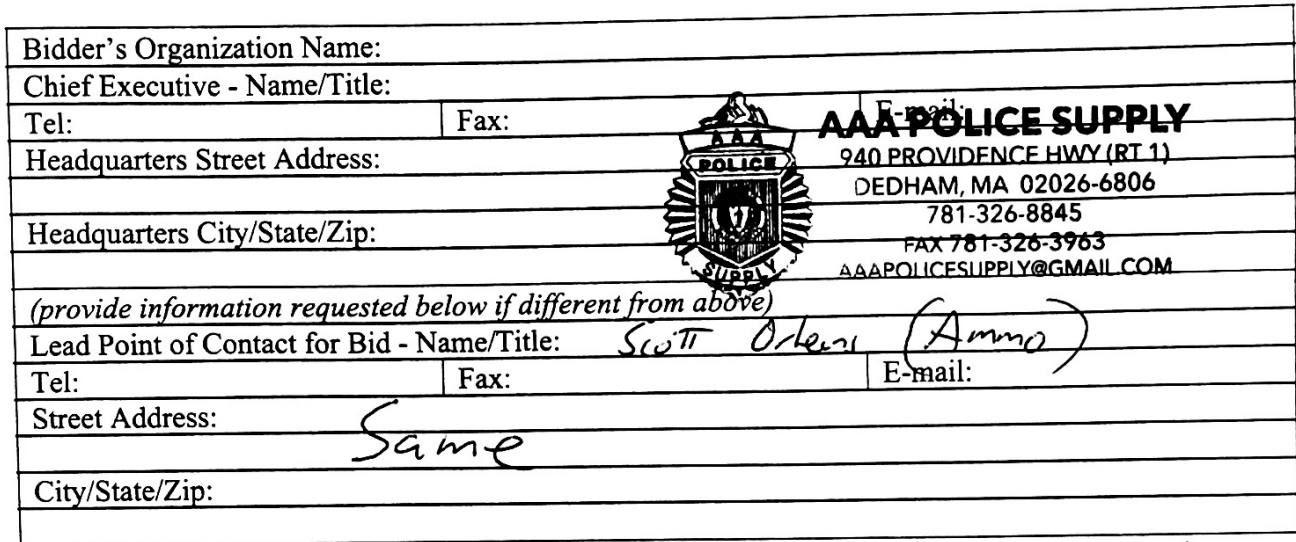 Bidder's Organization Name:
Chief Executive - Name/Title:
Tel: Fax: E-mail:
Headquarters Street Address:
Headquarters City/State/Zip:
AAA
POLICE
SUPPLY
AAA POLICE SUPPLY
940 PROVIDENCE HWY (RT 1)
DEDHAM, MA 02026-6806
781-326-8845
FAX 781-326-3963
AAAPOLICESUPPLY@GMAIL.COM
(provide information requested below if different from above)
Lead Point of Contact for Bid - Name/Title: Scott Orlens (Ammo)
Tel: Fax: E-mail:
Street Address:
Same
City/State/Zip: